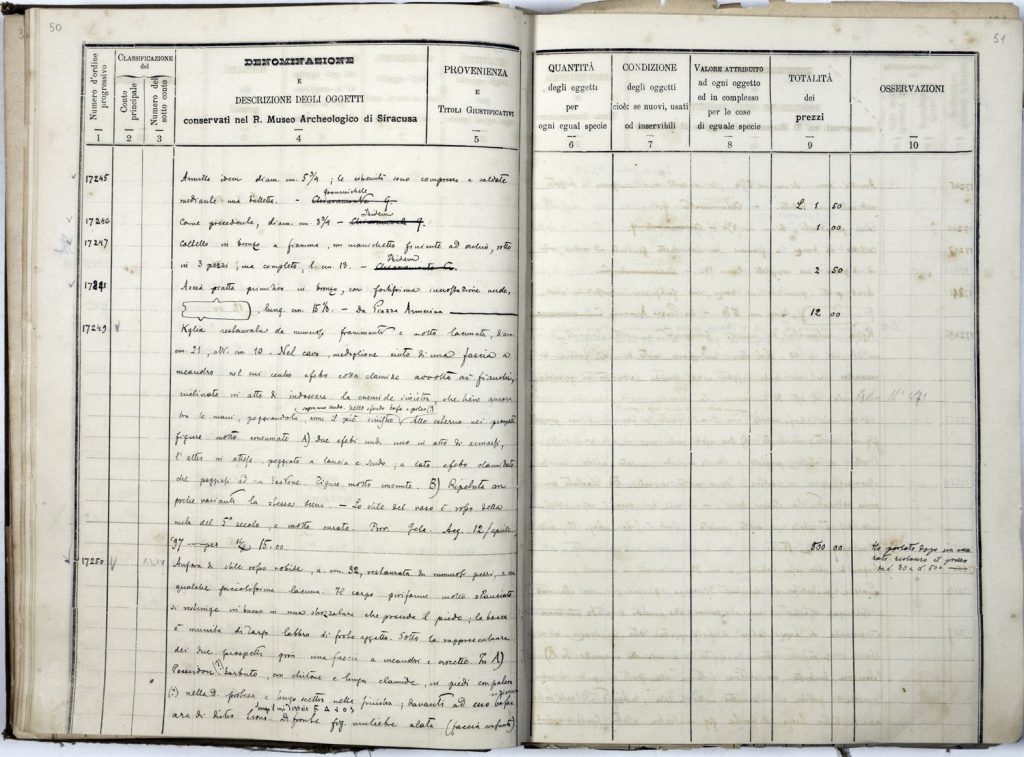 50
51
Numero d'ordine progressivo
CLASSIFICAZIONE del
Conto principale
Numero del sotto conto
DENOMINAZIONE
E
DESCRIZIONE DEGLI OGGETTI
conservati nel R. Museo Archeologico di Siracusa
PROVENIENZA
E
TITOLI GIUSTIFICATIVI
QUANTITÀ
degli oggetti
per
ogni egual specie
CONDIZIONE
degli oggetti
cioè: se nuovi, usati
od inservibili
VALORE ATTRIBUITO
ad ogni oggetto
ed in complesso
per le cose
di eguale specie
TOTALITÀ
dei
prezzi
OSSERVAZIONI
1 2 3 4 5 6 7 8 9 10
17245 Anello idem. diam. cm. 5 3/4; le estremità sono compresse e saldate
Grammichele
mediante una Chiaramonte G. L. 1 50
Ibidem
17246 Come precedente, diam. cm. 3 3/4 - Chiaramonte G. 1 00
17247 Coltello in bronzo a fiamma, con manichetto finiente ad occhio, rotto
Ibidem
in 3 pezzi, ma completo, l. cm. 13. - Chiaramonte G. 2 50
Ascia piatta primitiva in bronzo, con fortissima incrostazione verde,
lung. cm. - Da Piazza Armerina 12 00
17249 Kylix restaurata da numerosi frammenti e molto lacunata, diam.
cm. 21, alt. cm. 10. Nel cavo, medaglione cinto di una fascia a
meandro nel cui centro efebo colla clamide avvolta ai fianchi,
inclinato in atto di indossare la cnemide sinistra, che tiene ancora
sopra uno scudo. Nello sfondo
tra le mani, poggiandola, come il piè sinistro. Allo esterno nei prospetti
figure molto consumate A) Due efebi nudi uno in atto di armarsi,
l'altro in attesa, poggiato a lancia e scudo; a lato efebo clamidato
che poggiasi ad un bastone. Figure molto consunte. B) Ripetuta con
poche varianti la stessa scena - Lo stile del vaso è rosso della
metà del 5° secolo, e molto curato. Prov. Gela. Acq. 12/aprile
97 - per 15.00 500 00
Ha portato dopo un accu-
rato restauro il prezzo
da L. 30 a L. 500
17250 Anfora di stile rosso nobile, a. cm. 32, restaurata da numerosi pezzi, e con
qualche piccolissima lacuna. Il corpo piriforme molto slanciato
si restringe in basso in una strozzatura che precede il piede; la bocca
è munita di largo labbro di forte aggetto. Sotto la rappresentanza
dei due prospetti gira una fascia a meandri e crocette. In A)
Poseidon (?) barbuto, con chitone e lunga clamide, in piedi con
(?) nella d. protesa e lungo scettro nella sinistra; davanti ad esso
ara di dietro Di fronte fig. muliebre alata (faccia